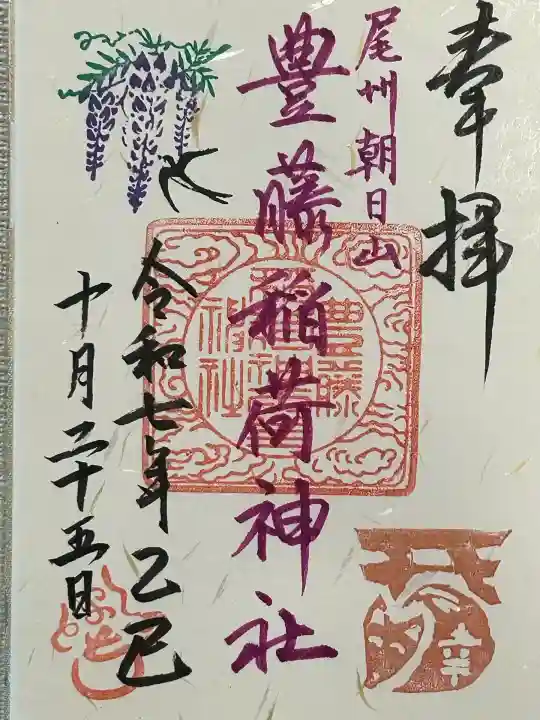 奉拝
尾州朝日山
豊藤稲荷神社
令和七年乙巳
十月二十五日